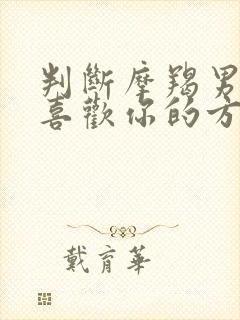 判斷摩羯男
喜歡你的方
戴育華